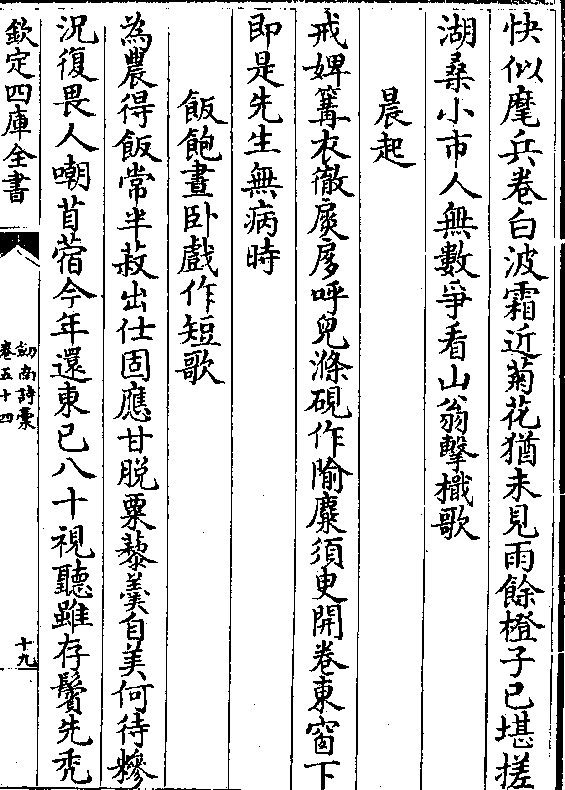 快似麾兵卷白波霜近菊花猶未見雨餘橙子已堪搓
湖桑小市人無數爭看山翁擊檝歌
晨起
戒婢篝衣徹扊扅呼兒滌硯作隃麋須臾開卷東窗下
即是先生無病時
飯飽晝卧戲作短歌
為農得飯常半菽出仕固應甘脱粟藜羮自美何待糝
況復畏人嘲苜蓿今年還東已八十視聽雖存鬢先禿
欽定四庫全書
劔南詩稾
卷五十四
十九